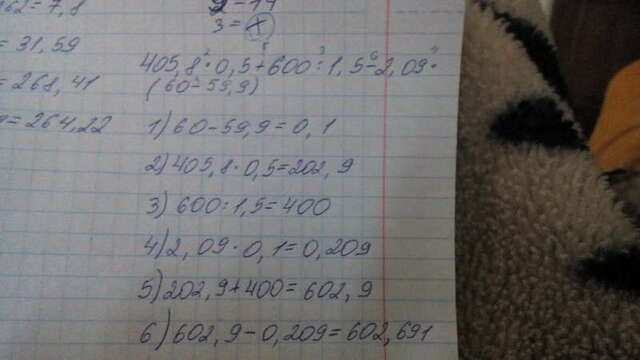 162=7,8
=31,59
=268,41
=264,22
3=
405,8·0,5+600:1,5-2,09·
(60-59,9)
1) 60-59,9=0,1
2) 405,8·0,5=202,9
3) 600:1,5=400
4) 2,09·0,1=0,209
5) 202,9+400=602,9
6) 602,9-0,209=602,691